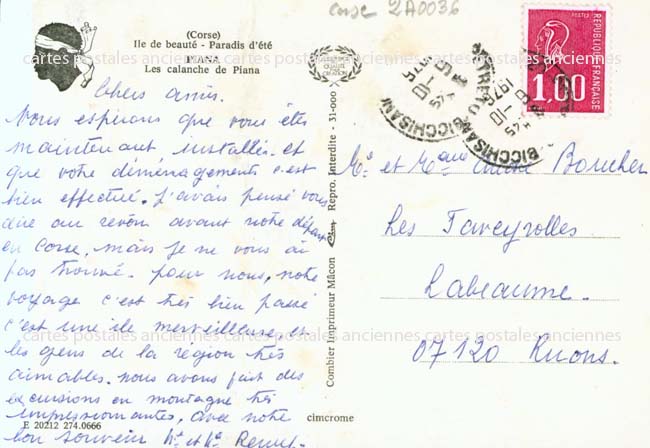 Corse 2A0036
(Corse)
Ile de beauté - Paradis d'été
PIANA
Les calanche de Piana
Chers amis.
Nous espérons que vous êtes
maintenant installés. et
que votre déménagements c'est
bien effectué. J'avais pensé vous
dire au revoir avant notre départ
en Corse, mais je ne vous ai
pas trouvé. pour nous, notre
voyage c'est très bien passé
c'est une île merveilleuse, et
les gens de la région très
aimables. nous avons fait des
excursions en montagne très
impressionnantes, avec notre
bon souvenir Mr et Me
E 20212 274.0666
cimcrome
Combier Imprimeur Mâcon
Repro. Interdite - 31-0000
REPUBLIQUE FRANÇAISE
POSTES
1,00
BICCHISANO
1976
Mr et Mme Boucher
Les Taveyrolles
Labeaume.
07120 Ruoms.
cartes postales anciennes cartes postales anciennes cartes postales anciennes
cartes postales anciennes cartes postales anciennes cartes postales anciennes